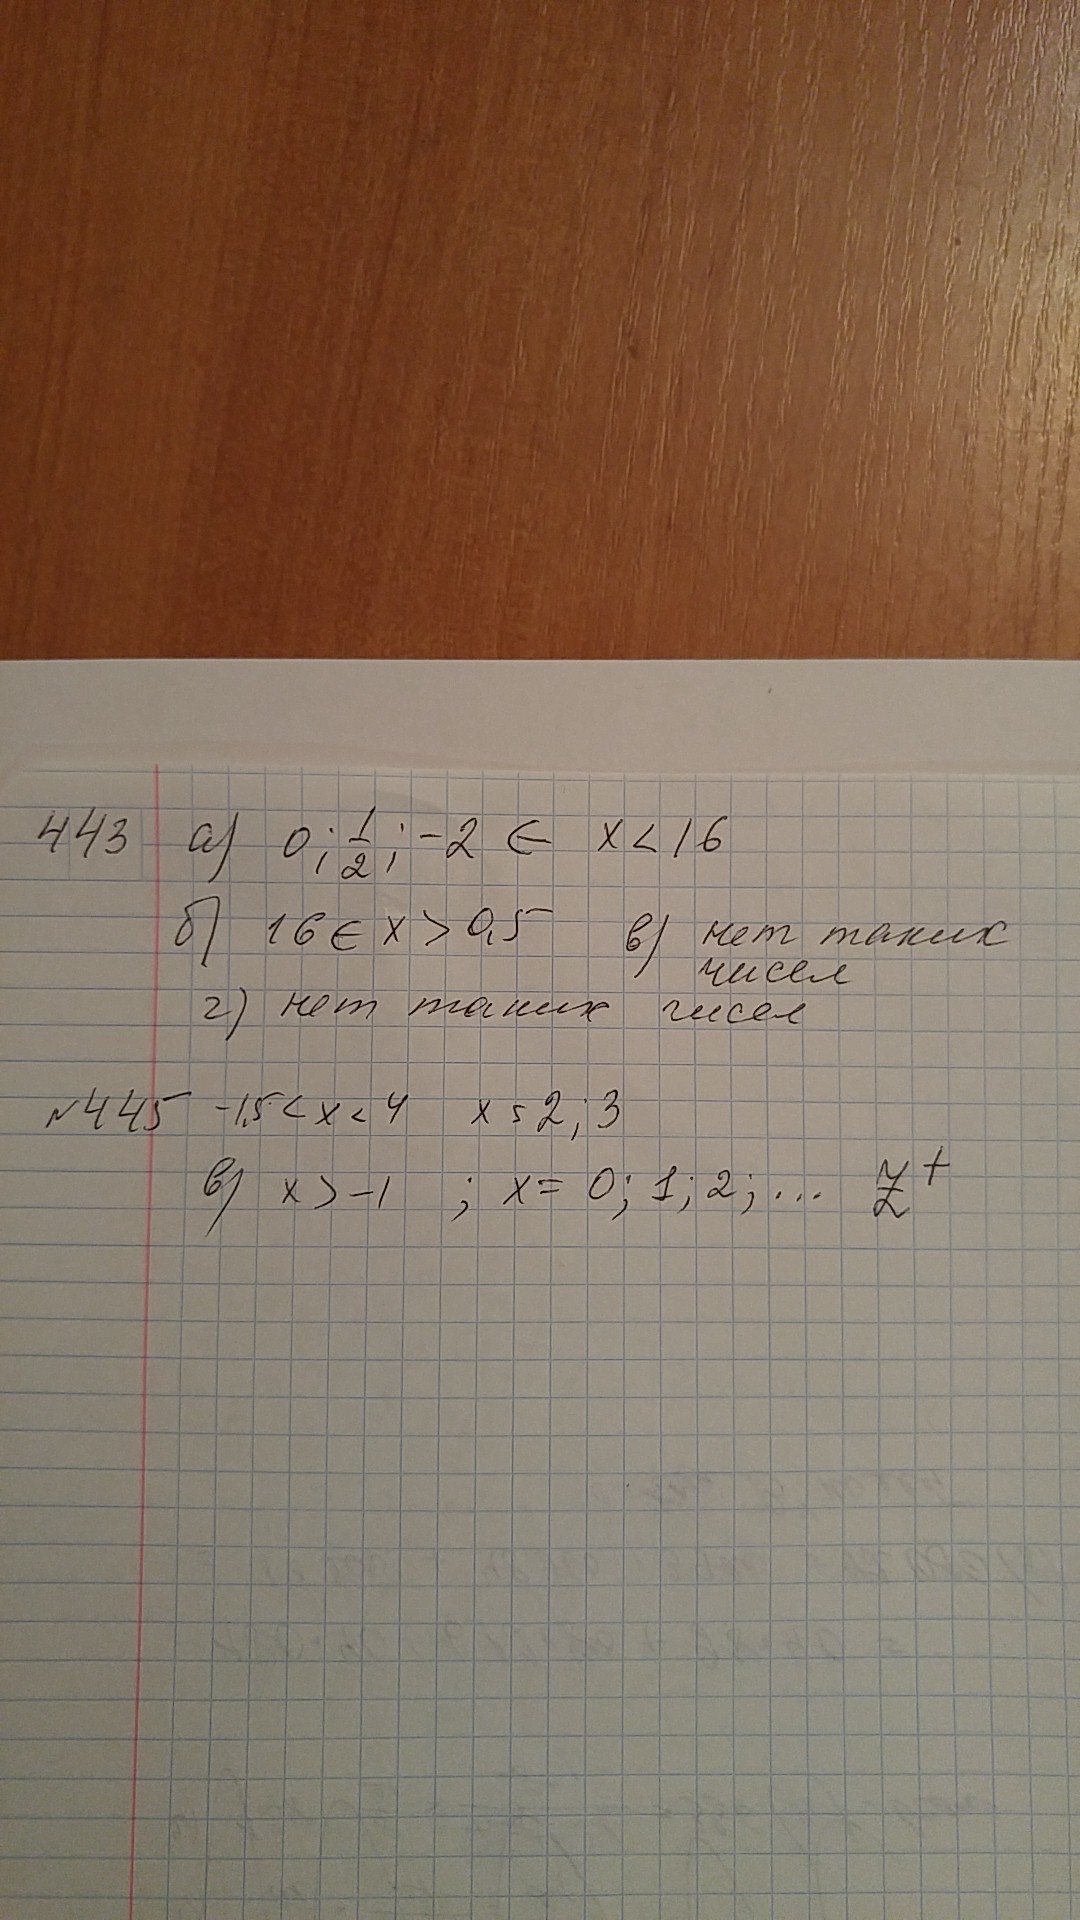 443 а) 0; 1/2; -2 ∈ x < 16
б) 16 ∈ x > 0,5 в) нет таких
чисел
г) нет таких чисел
№445 -1,5 < x < 4 x = 2; 3
в) x > -1 ; x = 0; 1; 2; ... Z⁺